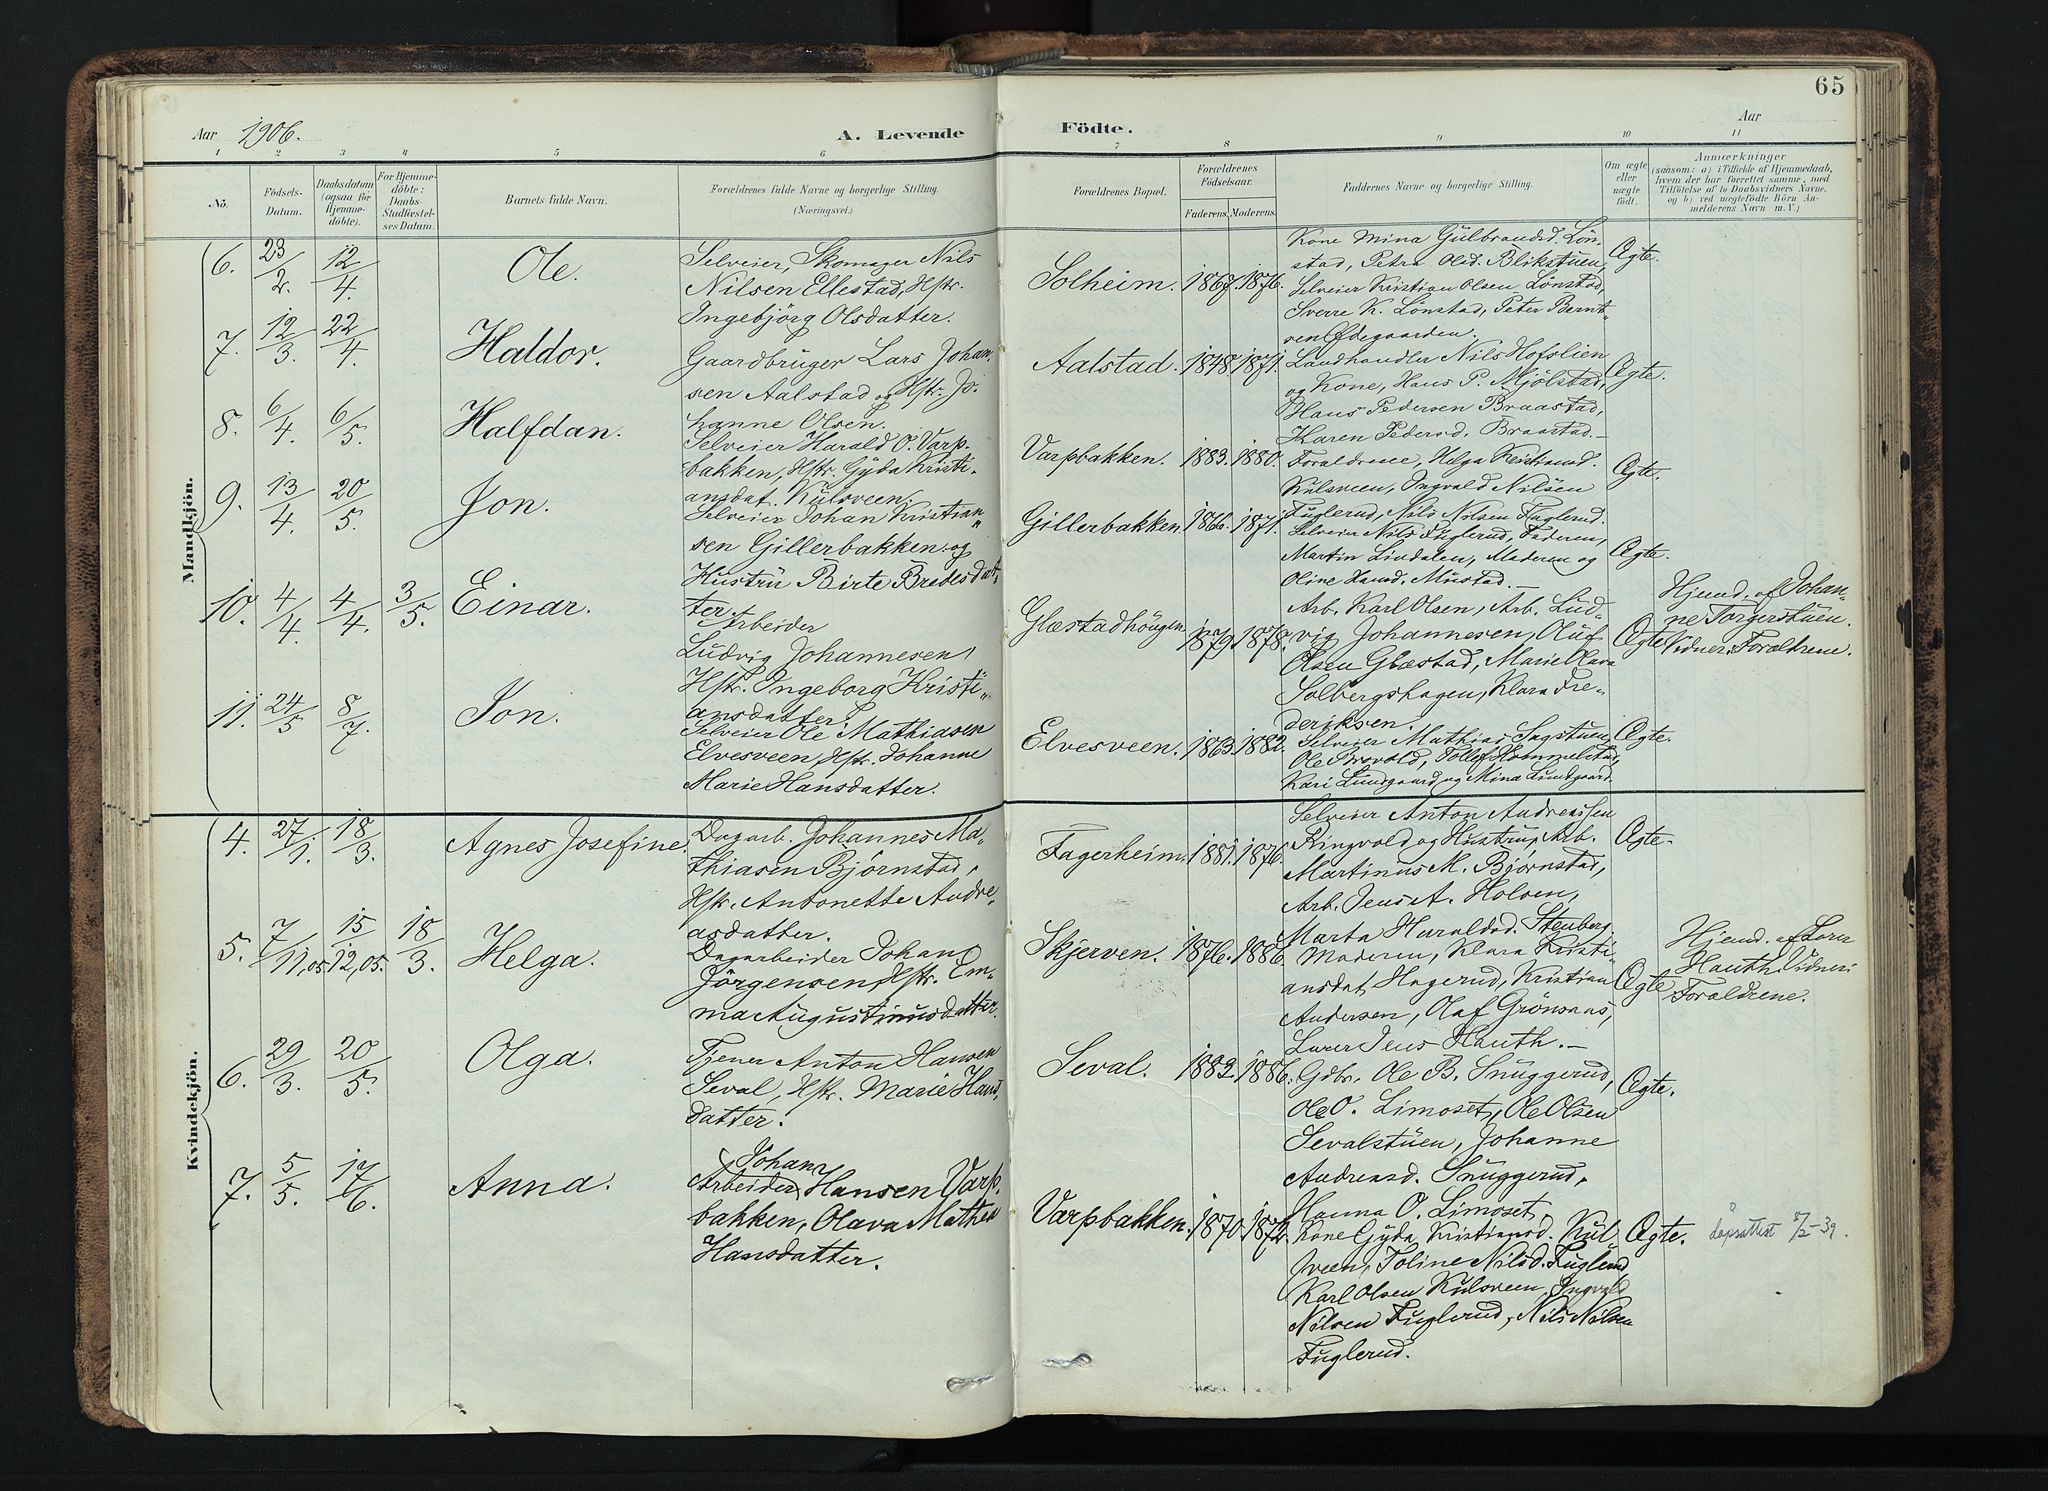 65
Aar 1906.
A. Levende Födte.
Aar
1 2 3 4 5 6 7 8 9 10 11
No.
Födsels-
Datum.
Daabsdatum
(ogsaa for
Hjemme-
döbte).
For Hjemme-
döbte:
Daabs-
Stadfæstel-
ses Datum.
Barnets fulde Navn.
Forældrenes fulde Navne og borgerlige Stilling.
(Næringsvei.)
Forældrenes Bopæl.
Forældrenes
Födselsaar.
Faderens. Moderens.
Faddernes Navne og borgerlige Stilling.
Om ægte
eller
uægte
födt.
Anmærkninger
(saasom: a) i Tilfælde af Hjemmedaab,
hvem der har forrettet samme, med
Tilföielse af to Daabsvidners Navne,
og b) ved uægtefödte Börn An-
melderens Navn m. V.)
Mandkjön.
6. 23/2. 12/4. Ole.
Selveier, Skomager Nils
Nilsen Ellestad, Hstr.
Ingebjörg Olsdatter.
Solheim. 1867. 1876.
Kone Mina Gulbrandsd. Lön-
stad, Petra Olsd. Blikstuen,
Selveier Kristian Olsen Lönstad,
Sverre K. Lönstad, Peter Bernt-
sen Ødegaarden.
Ægte.
7. 12/3. 22/4. Haldor.
Gaardbruger Lars Johan-
sen Aalstad og Hstr. Jo-
hanne Olsen.
Aalstad. 1848. 1871.
Landhandler Nils Hofslien
og Kone, Hans P. Mjölstad,
Hans Pedersen Braastad,
Karen Pedersd. Braastad.
Ægte.
8. 6/4. 6/5. Halfdan.
Selveier Harald O. Varp-
bakken, Hstr. Gyda Kristi-
ansdat. Kulsveen.
Varpbakken. 1883. 1880.
Forældrene, Helga Kristiansd.
Kulsveen, Ingvald Nilsen
Fuglerud, Nils Nilsen Fuglerud.
Ægte.
9. 13/4. 20/5. Jon.
Selveier Johan Kristian-
sen Gillerbakken og
Hustru Birte Bredesdat-
ter
Gillerbakken. 1866. 1871.
Selveier Nils Fuglerud, Faderen,
Martin Lindalen, Moderen og
Oline Hansd. Mustad.
Ægte.
10. 4/4. 4/4. 3/5. Einar.
Arbeider
Ludvig Johannesen,
Hstr. Ingeborg Kristi-
ansdatter.
Glæstadhöugen. 1879. 1878.
Arb. Karl Olsen, Arb. Lud-
vig Johannesen, Oluf
Olsen Glæstad, Marie Olava
Solbergshagen, Klara Fre-
deriksen.
Ægte
Hjemd. af Johan-
ne Torgerstuen.
Vidner: Forældrene.
11. 24/5. 8/7. Jon.
Selveier Ole Mathiasen
Elvesveen, Hstr. Johanne
Marie Hansdatter.
Elvesveen. 1863. 1882.
Selveier Mathias Sagstuen,
Ole Prøvold, Tollef Hammelstad,
Kari Lundgaard og Mina Lundgaard.
Ægte.
Kvindekjön.
4. 27/1. 18/3. Agnes Josefine.
Dagarb. Johannes Ma-
thiasen Björnstad,
Hstr. Antonette Andre-
asdatter.
Fagerheim. 1881. 1876.
Selveier Anton Andreassen
Ringvold og Hustru, Arb.
Martinus M. Björnstad,
Arb. Jens A. Holsen,
Marta Haraldsd. Stenberg.
Ægte.
5. 7/11,05. 15/12,05. 18/3. Helga.
Dagarbeider Johan
Jörgensen, Hstr. Em-
ma Augustinusdatter.
Skjerven. 1876. 1886.
Moderen, Klara Kristi-
ansdat. Hagerud, Kristian
Andersen, Olaf Grönsnas,
Lærer Jens Hauth.
Ægte
Hjemd. af Lærer
Hauth. Vidner:
Forældrene.
6. 29/3. 20/5. Olga.
Tjener Anton Hansen
Seval, Hstr. Marie Hans-
datter.
Seval. 1882. 1886.
Gdbr. Ole B. Snuggerud,
Ole O. Limoset, Ole Olsen
Sevalstuen, Johanne
Andreasd. Snuggerud,
Hanna O. Limoset.
Ægte.
7. 5/5. 17/6. Anna.
Johan
Arbeider Hansen Varp-
bakken, Olava Mathea
Hansdatter.
Varpbakken. 1870. 1872.
Kone Gyda Kristiansd. Kul-
sveen, Toline Nilsd. Fuglerud,
Karl Olsen Kulsveen, Ingvald
Nilsen Fuglerud, Nils Nilsen
Fuglerud.
Ægte.
dåpsattest